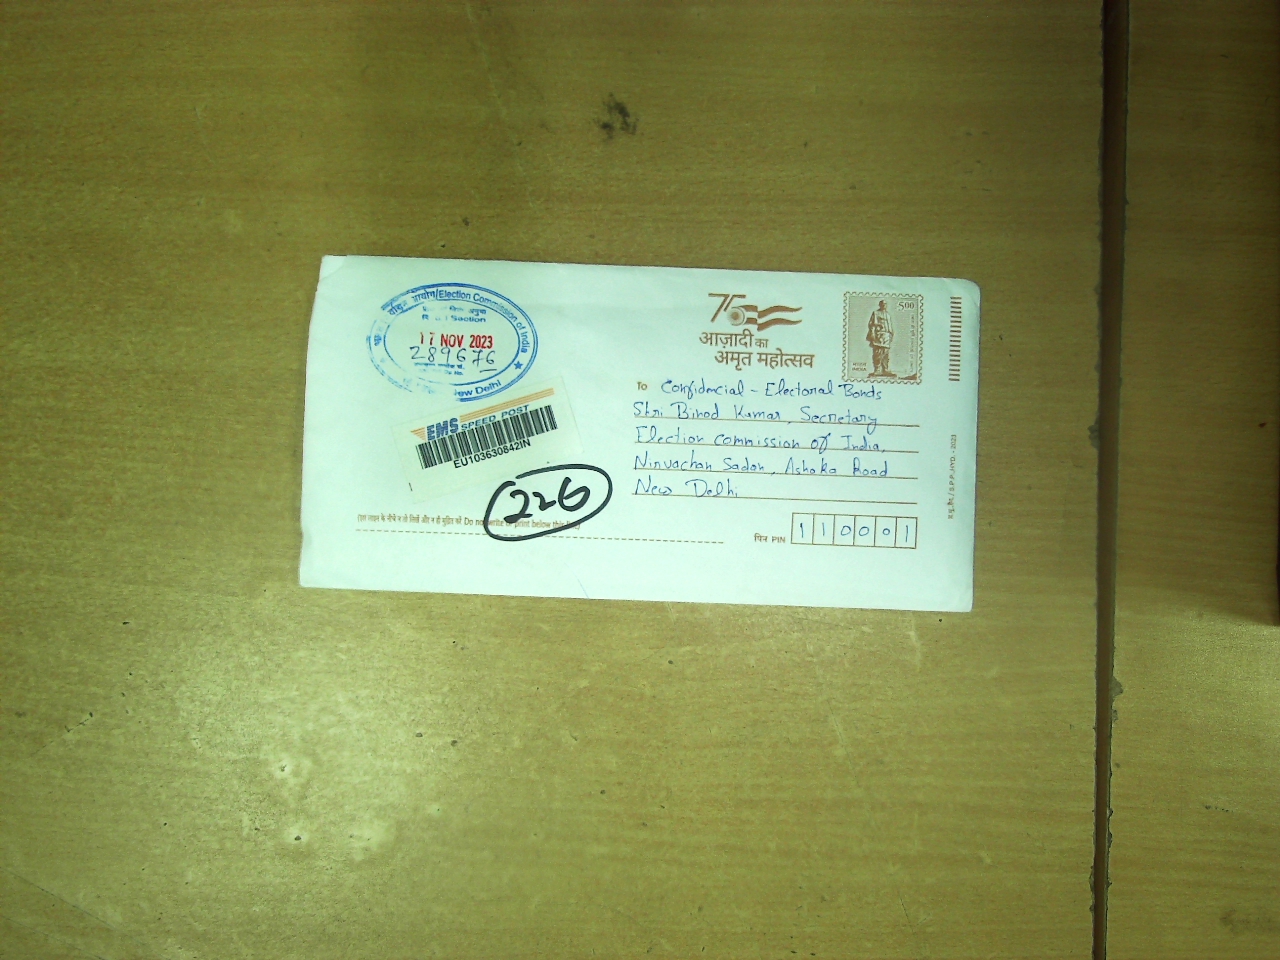 आयोग/Election Commission of India
Section
17 NOV 2023
289676
New Delhi
EMS SPEED POST
EU103630842IN
226
75
आज़ादी का
अमृत महोत्सव
5.00
To Confidencial - Electoral Bonds
Shri Binod Kumar, Secretary
Election commission of India,
Nirvachan Sadan, Ashoka Road
New Delhi
पिन PIN 110001
(इस लाइन के नीचे न तो लिखें और न ही मुद्रित करें Do not write or print below this line)